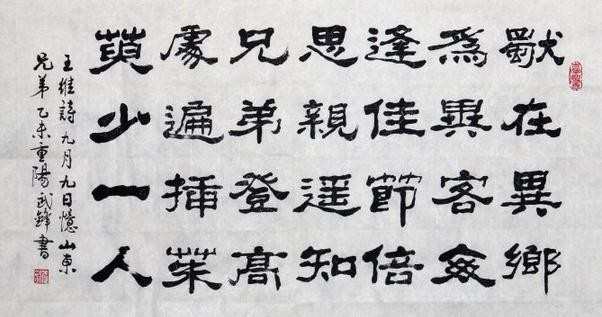 獨在異鄉
爲異客每
逢佳節倍
思親遥知
兄弟登高
處遍插茱
萸少一人
王維詩九月九日憶山東
兄弟乙未重陽武鋒書